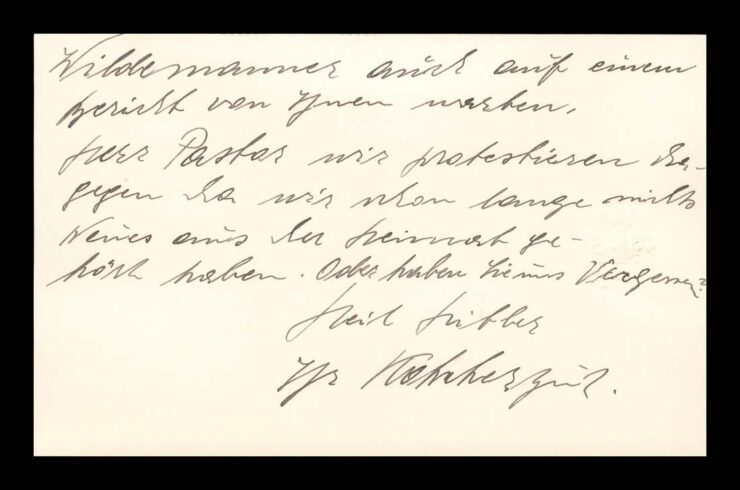 Wildemanner auch auf einem
Bericht von Ihnen warten.
Herr Pastor wir protestieren da-
gegen da wir schon lange nichts
Neues aus der Heimat ge-
hört haben. Oder haben Sie uns Vergessen?
Heil Hitler
Ihr